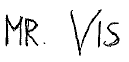 MR. VIS